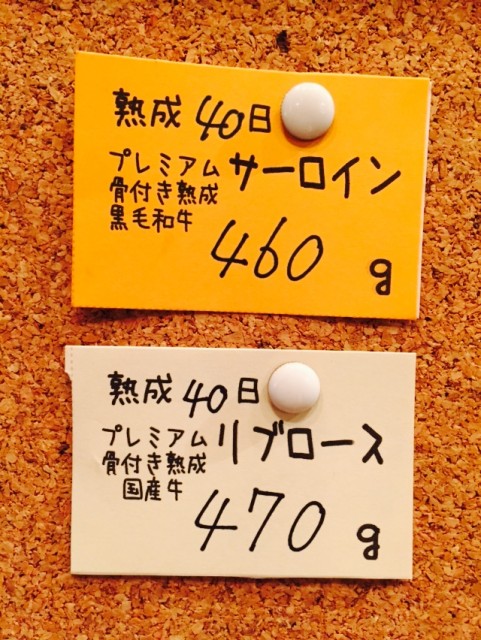 熟成 40日
プレミアム サーロイン
骨付き熟成
黒毛和牛
460 g
熟成 40日
プレミアム リブロース
骨付き熟成
国産牛
470 g